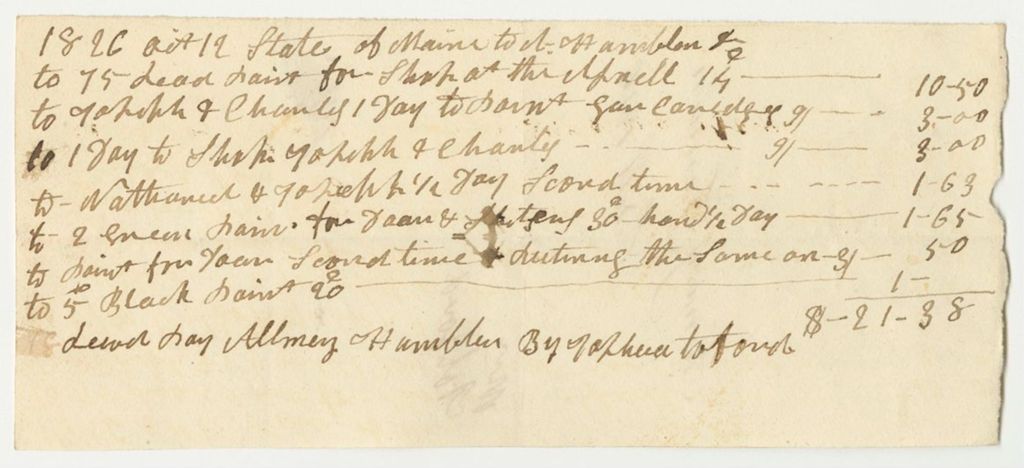 1826 oct 12 State of Maine to A. Hamblen Dr
to 75 Lead paint for Shop at the Arsnell 14 10-50
to Joseph & Charles 1 Day to paint Gun Caredges 9/ 3-00
to 1 Day to Shop Joseph & Charles 9/ 3-00
to Nathaneel & Joseph 1/2 Day Scond time 1-63
to 2 green paint for Doors & 30 hand 1/2 Day 1-65
to paint for Doors Scond time & puting the Same on 3/ 50
to 5 Black paint 20 1-
$-21-38
Recvd pay Allmery Hamblen By Joshua